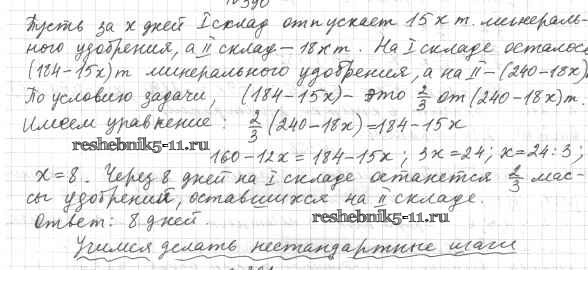 №390
Пусть за x дней I склад отпускает 15x т. минераль-
ного удобрения, а II склад – 18x т. На I складе осталос
(184-15x)т минерального удобрения, а на II – (240-18x)
По условию задачи, (184-15x) – это 2/3 от (240-18x)т.
Имеем уравнение: 2/3 (240-18x) = 184-15x
reshebnik5-11.ru
160-12x = 184-15x; 3x=24; x=24:3;
x=8. Через 8 дней на I складе останется 2/3 мас-
сы удобрений, оставшихся на II складе.
Ответ: 8 дней.
reshebnik5-11.ru
Учимся делать нестандартные шаги